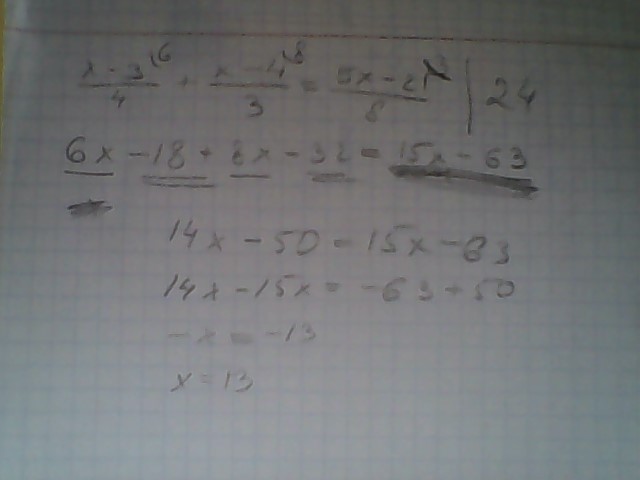 x - 3\6 / 4 + x - 4\8 / 3 = 5x - 21 / 8 | 24
6x - 18 + 8x - 32 = 15x - 63
14x - 50 = 15x - 63
14x - 15x = -63 + 50
-x = -13
x = 13